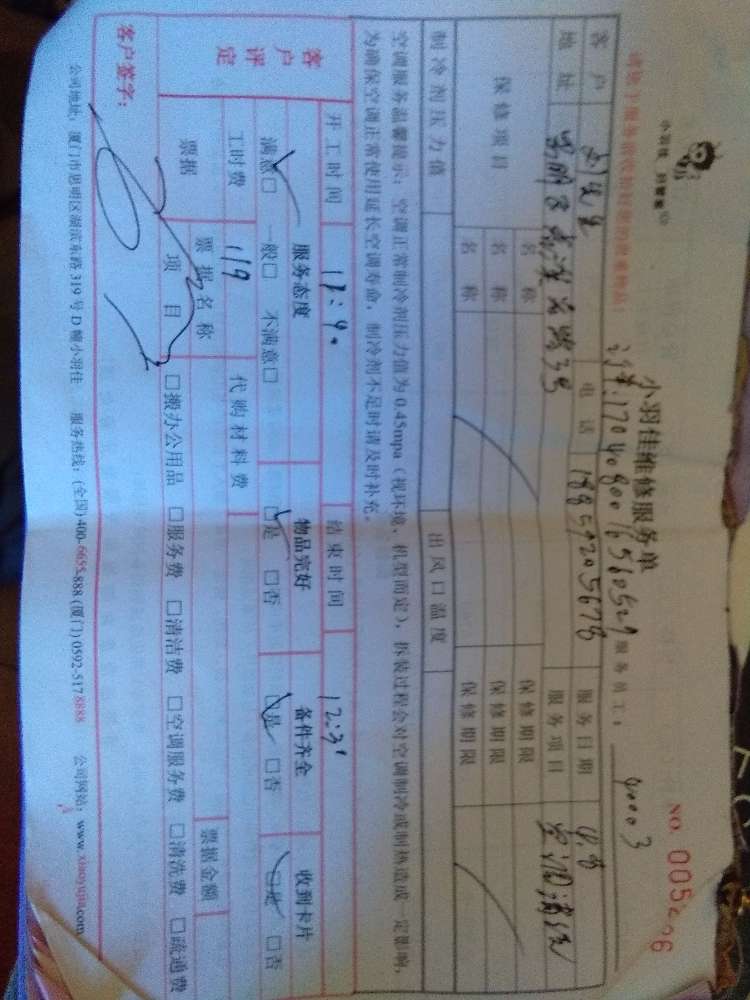 小羽佳维修服务单
NO. 005
服务员工:
客户 电话 服务日期
地址 思明区 服务项目 空调清洗
保修项目 名称 保修期限
名称 保修期限
名称 保修期限
制冷剂压力值 出风口温度
空调服务温馨提示:空调正常制冷剂压力值为0.45mpa(视环境、机型而定),拆装过程会对空调制冷或制热造成一定影响,
为确保空调正常使用延长空调寿命,制冷剂不足时请及时补充。
开工时间 11:40 结束时间 12:31
客户评定 服务态度 物品完好 备件齐全 收到卡片
满意□ 一般□ 不满意□ □是 □否 □是 □否 □是 □否
工时费 119 代购材料费
票据 票据名称 票据金额
项目 □搬办公用品 □服务费 □清洁费 □空调服务费 □清洗费 □疏通费
客户签字:
公司地址:厦门市思明区湖滨东路319号D幢小羽佳 服务热线:(全国)400-6655.888 (厦门) 0592-5178888 公司网站:www.xiaoyujia.com